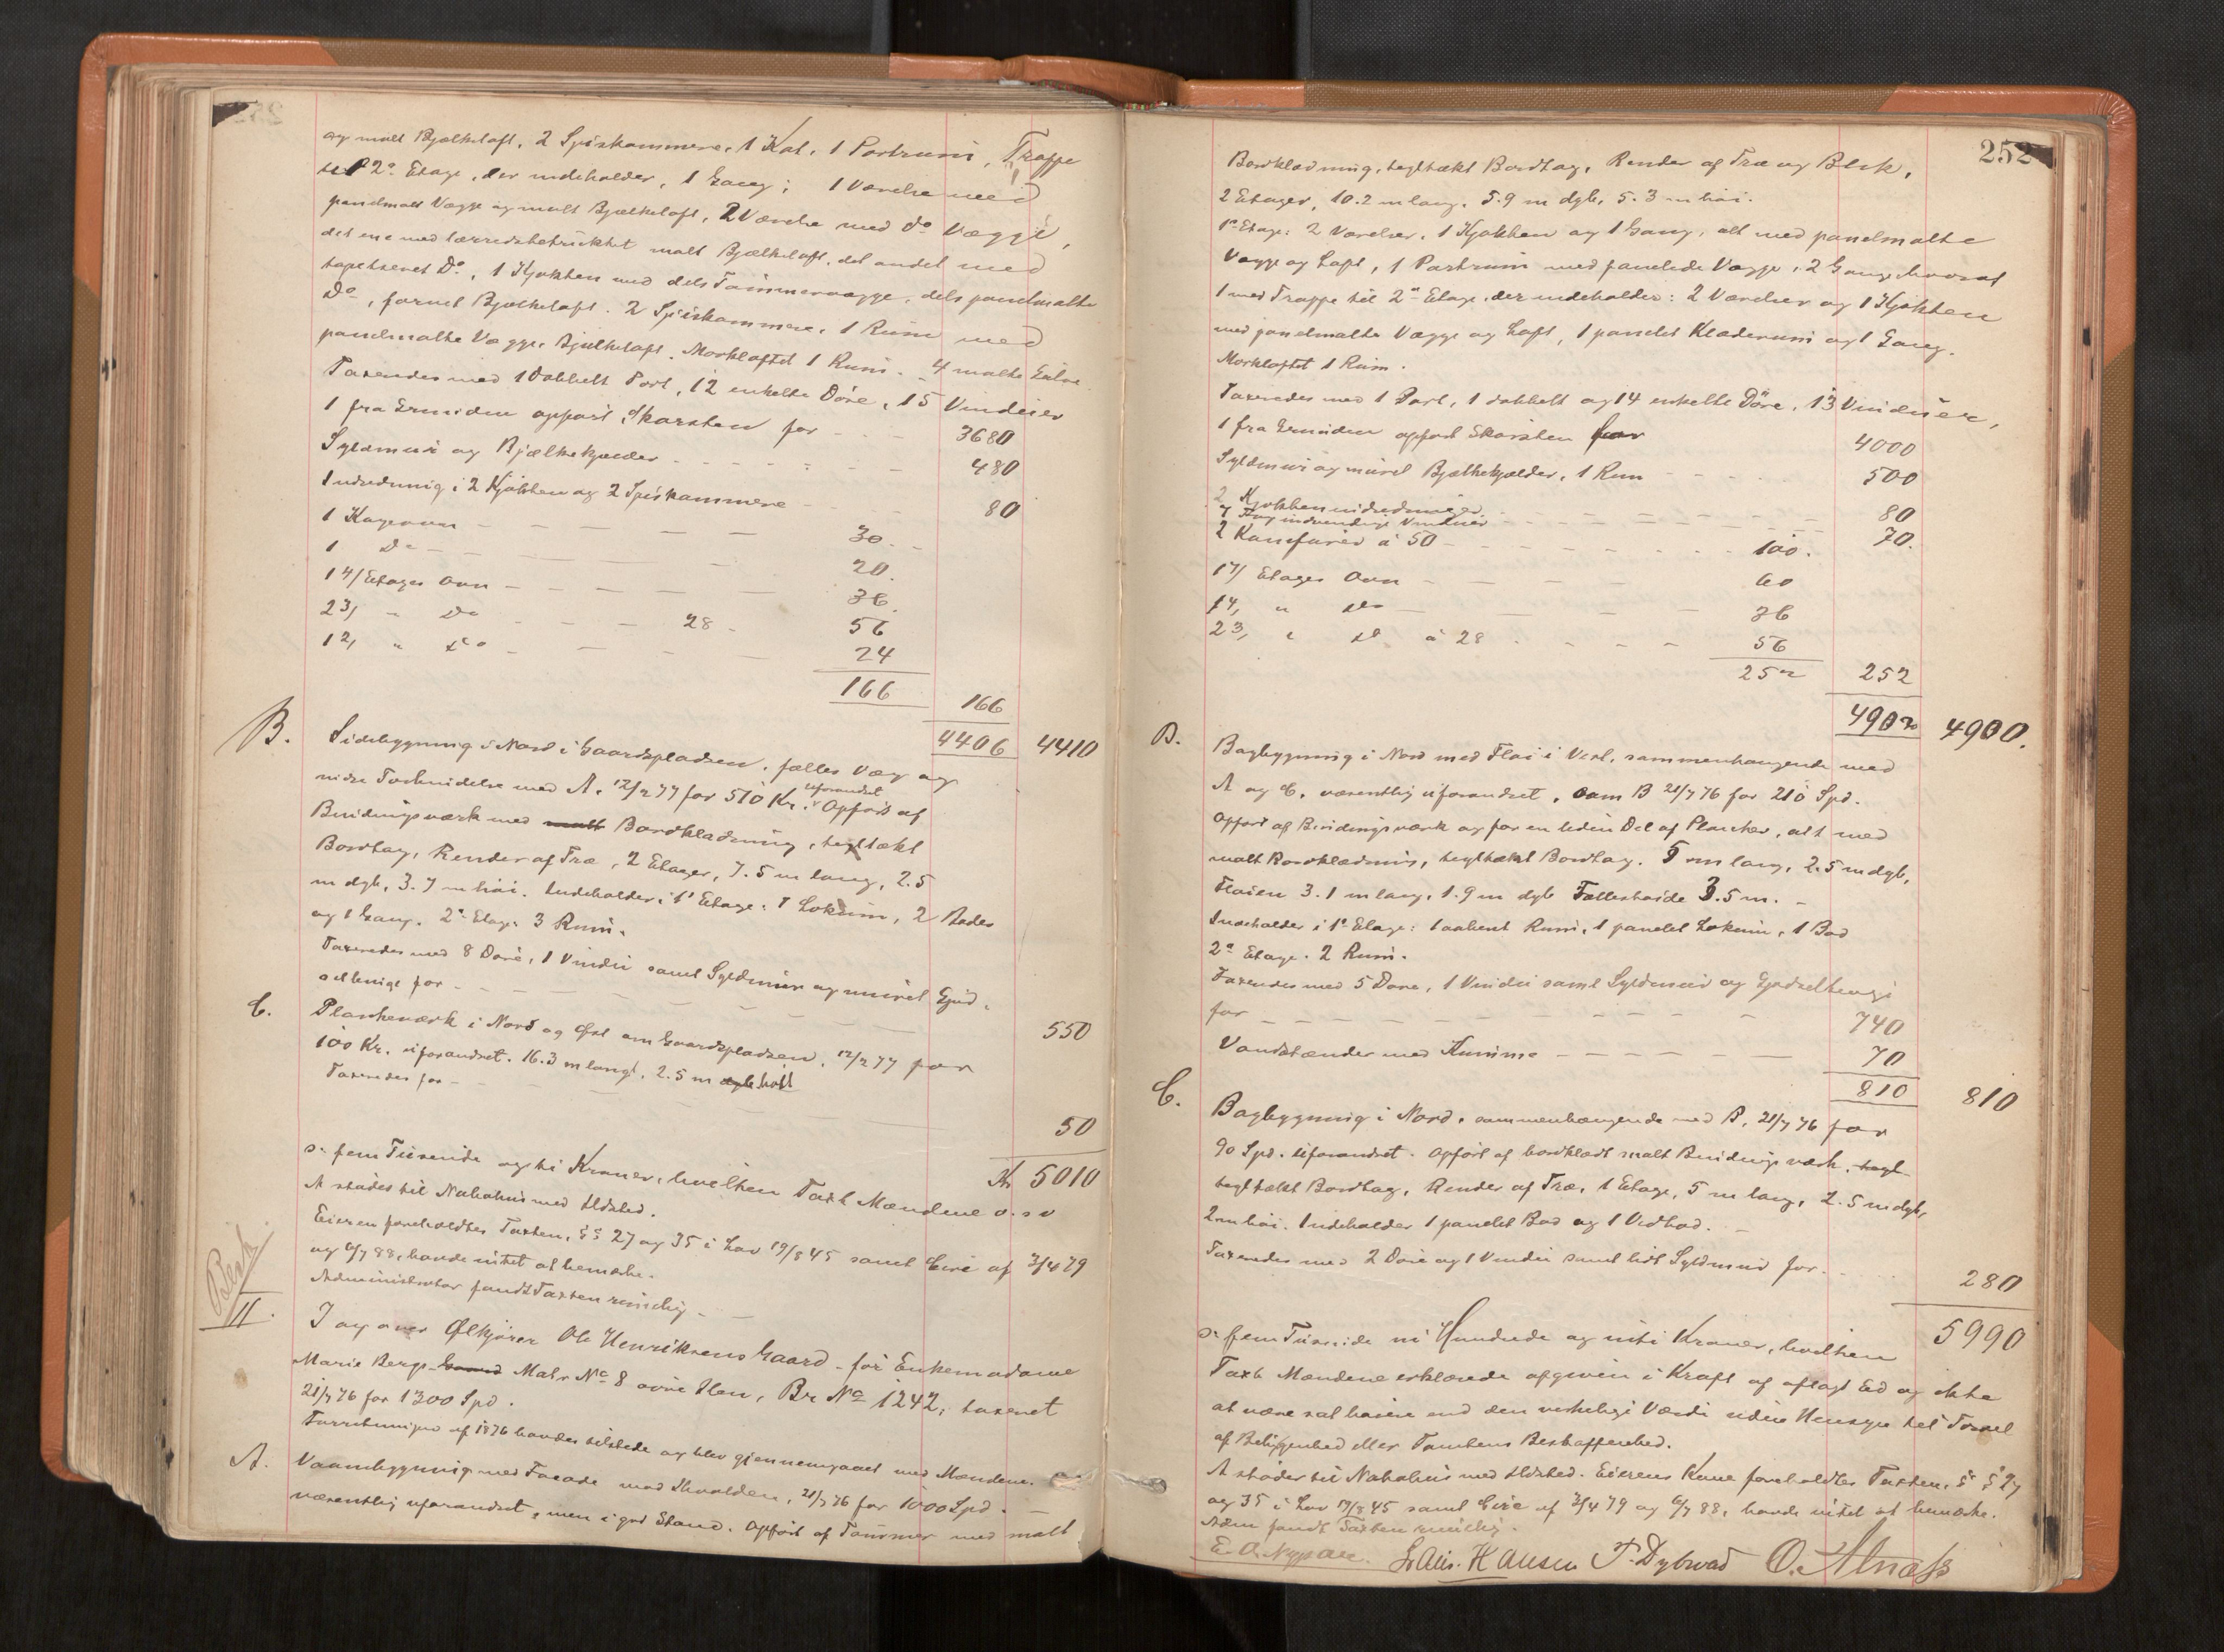 og malt Bjælkeloft, 2 Spiskammere, 1 Kot, 1 Portrum, Trappe
til 2den Etage, der indeholder, 1 Gang; 1 Værelse med
panelmalt Vægge og malt Bjælkeloft, 2 Værelse med do Vægge,
det ene med lærredsbetrukket malt Bjælkeloft, det andet med
tapetseret Do, 1 Kjøkken med dels Tømmervægge, dels panelmalte
Do, fornet Bjælkeloft. 2 Spiskammere, 1 Rum med
panelmalte Vægge, Bjælkeloft. Mørkloftet 1 Rum. 4 malte Gulve.
Taxeredes med 1 dobbelt Port, 12 enkelte Döre, 15 Vinduer
1 fra Grunden opfört Skorsten for - - - 3680
Syldmur og Bjælkekjælder - - - - - - 480
Indredning i 2 Kjøkken og 2 Spiskammere - - 80
1 Kogeovn - - - - - 30.
1 Do - - - - - 20.
1 4/ Etages Ovn - - - - 36.
2 3/ " Do - - - 28 - 56
1 2/ " Do - - - - 24
166 166
4406 4410
B. Sidebygning i Nord i Gaardspladsen, fælles Væg og
uforandret
indre Forbindelse med A, 12/2 77 for 510 Kr. Opfört af
Bindingsværk med malt Bordklædning, tegltækt
Bordtag, Render af Træ, 2 Etager, 7.5 m lang, 2.5
m dyb, 3.7 m höi. Indeholder i 1ste Etage: 1 Lokum, 2 Boder
og 1 Gang. 2den Etage 3 Rum.
Taxeredes med 8 Döre, 1 Vindu samt Syldmur og muret Gjød-
selbinge for - - - - - - 550
C. Plankeværk i Nord og Øst om Gaardspladsen, 12/2 77 for
100 Kr. uforandret. 16.3 m langt, 2.5 m dyb høit
Taxeredes for - - - - - 50
Kr 5010
Sr. fem Tusende og ti Kroner, hvilken Taxt Mændene o.s.v
A stödes til Nabohus med Ildsted.
Eieren foreholdtes Taxten, §§ 27 og 35 i Lov 19/8 45 samt Circ af 3/4 79
og 6/7 88, havde intet at bemærke.
Administrator fandt Taxten rimelig -
Besk
II. I og over Ølkjører Ole Henriksens Gaard - för Enkemadame
Marie Bergs Gaard Matr No 8 øvre Ilen, Br No 1242, taxeret
21/7 76 for 1300 Spd.
Forretningen af 1876 havdes tilstede og blev gjennemgaaet med Mændene.
A. Vaanbygning med Facade mod Ilvolden, 21/7 76 for 1000 Spd. -
væsentlig uforandret, men i god Stand. Opfört af Tömmer med malt
252
Bordklædning, tegltækt Bordtag, Render af Træ og Blik,
2 Etager, 10.2 m lang, 5.9 m dyb, 5.3 m höi.
1ste Etage: 2 Værelser, 1 Kjøkken og 1 Gang, alt med panelmalte
Vægge og Loft, 1 Portrum med panelede Vægge, 2 Gange hvoraf
1 med Trappe til 2den Etage, der indeholder: 2 Værelser og 1 Kjøkken
med panelmalte Vægge og Loft, 1 panelet Klæderum og 1 Gang.
Mørkloftet 1 Rum.
Taxeredes med 1 Port, 1 dobbelt og 14 enkelte Döre, 13 Vinduer,
1 fra Grunden opfört Skorsten for 4000
Syldmur og muret Bjælkekjælder, 1 Rum - - - 500
2 Kjøkkenindredninger - - - - - 80
7 Fag indvendige Vinduer - - - - 70.
2 Komfurer á 50 - - - - - 100.
1 7/ Etages Ovn - - - - 60
1 4/ " Do - - - - 36
2 3/ " Do á 28 - - - - 56
252 252
4902 4900.
B. Bagbygning i Nord med Fløi i Vest, sammenhængende med
A og C, væsentlig uforandret, som B 21/7 76 for 210 Spd.
Opfört af Bindingsværk og for en liden Del af Planker, alt med
malt Bordklædning, tegltækt Bordtag. 5 m lang, 2.5 m dyb,
Fløien 3.1 m lang, 1.9 m dyb Fælleshøide 3.5 m. -
Indeholder i 1ste Etage: 1 aabent Rum, 1 panelet Lokum, 1 Bod
2den Etage. 2 Rum.
Taxeredes med 5 Döre, 1 Vindu samt Syldmur og Gjødselbinge
for - - - - - - - - 740
Vandstænder med Kumme - - - - - 70
810 810
C. Bagbygning i Nord, sammenhængende med B, 21/7 76 for
90 Spd. uforandret. Opfört af bordklædt malt Bindingsværk, tegl
tegltækt Bordtag, Render af Træ, 1 Etage, 5 m lang, 2.5 m dyb,
2 m höi. Indeholder 1 panelet Bod og 1 Vedbod. -
Taxeredes med 2 Döre og 1 Vindu samt lidt Syldmur for - 280
5990
Sr. fem Tusinde ni Hundrede og niti Kroner, hvilken
Taxt Mændene erklærede afgiven i Kraft af aflagt Ed og ikke
at være sat høiere end den virkelige Værdi uden Hensyn til Forsel
af Beliggenhed eller Tomtens Beskaffenhed.
A stöder til Nabohus med Ildsted. Eierens Kone foreholdtes Taxten, §§ 27
og 35 i Lov 19/8 45 samt Circ af 3/4 79 og 6/7 88, havde intet at bemærke.
Adm fandt Taxten rimelig.
E. A. Nygaar. Laur. Hansen P. Dybwad O. Alnæss